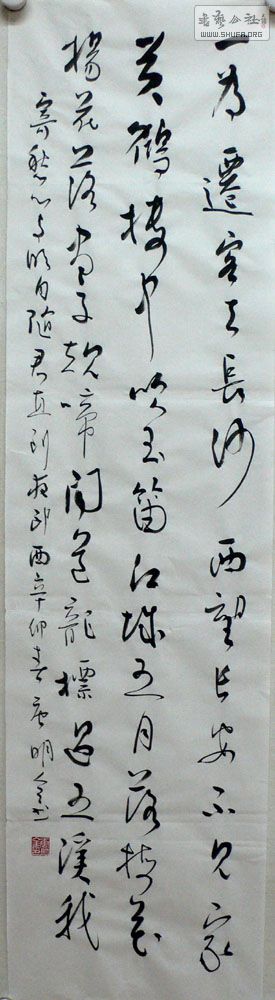 一为遷客去長沙西望長安不见家
黄鹤楼中吹玉笛江城五月落梅花
楊花落尽子规啼闻道龍標过五溪我
寄愁心与明月随君直到夜郎西辛卯春 明
书艺公社
WWW.SHUFA.ORG